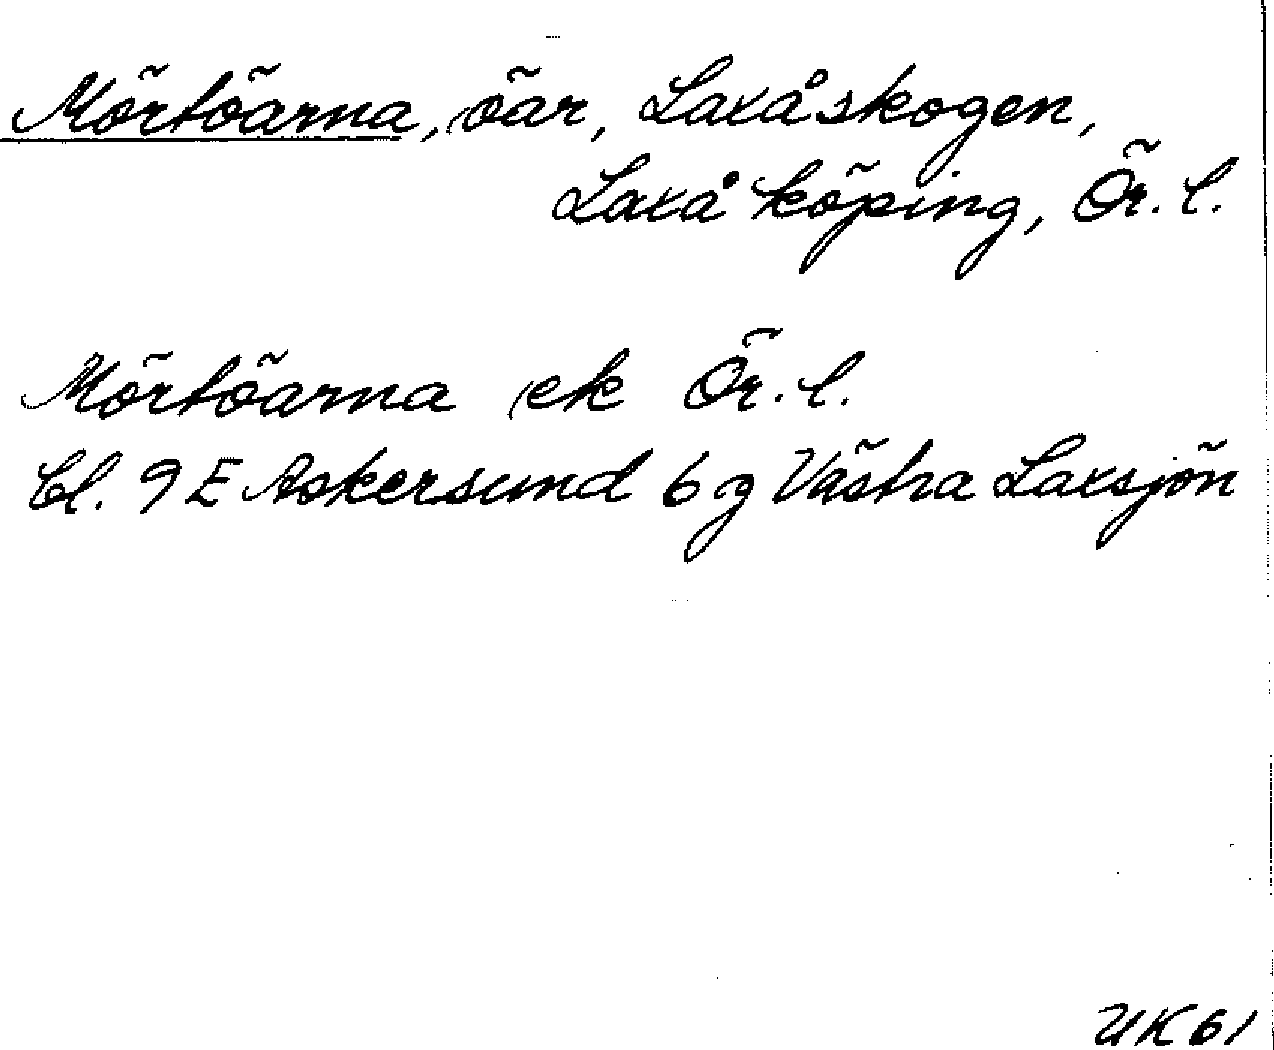 Mörtöarna, öar, Laxåskogen,
Laxå köping, Ör. l.
Mörtöarna ek Ör. l.
bl. 9 E Askersund 6 g Västra Laxsjön
UK 61